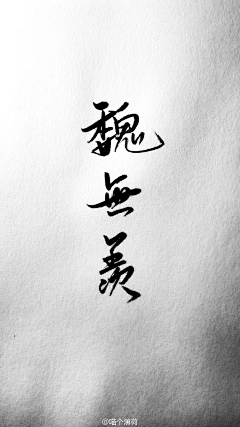 魏無羨
@喵个薄荷